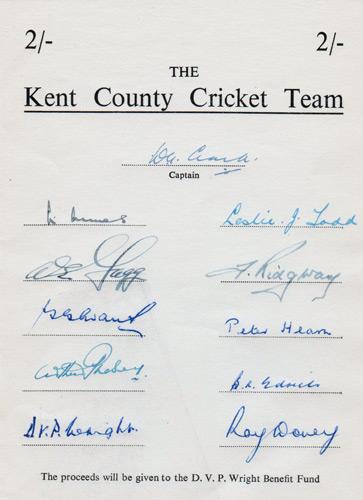 2/- 2/-
THE
Kent County Cricket Team
D.G. Clark.
Captain
Leslie J. Todd
W E Fagg F. Ridgway
T G Evans
Peter Hearn
Arthur Phebey. B. R. Edrich
D.V.P. Wright. Ray Dovey
The proceeds will be given to the D. V. P. Wright Benefit Fund